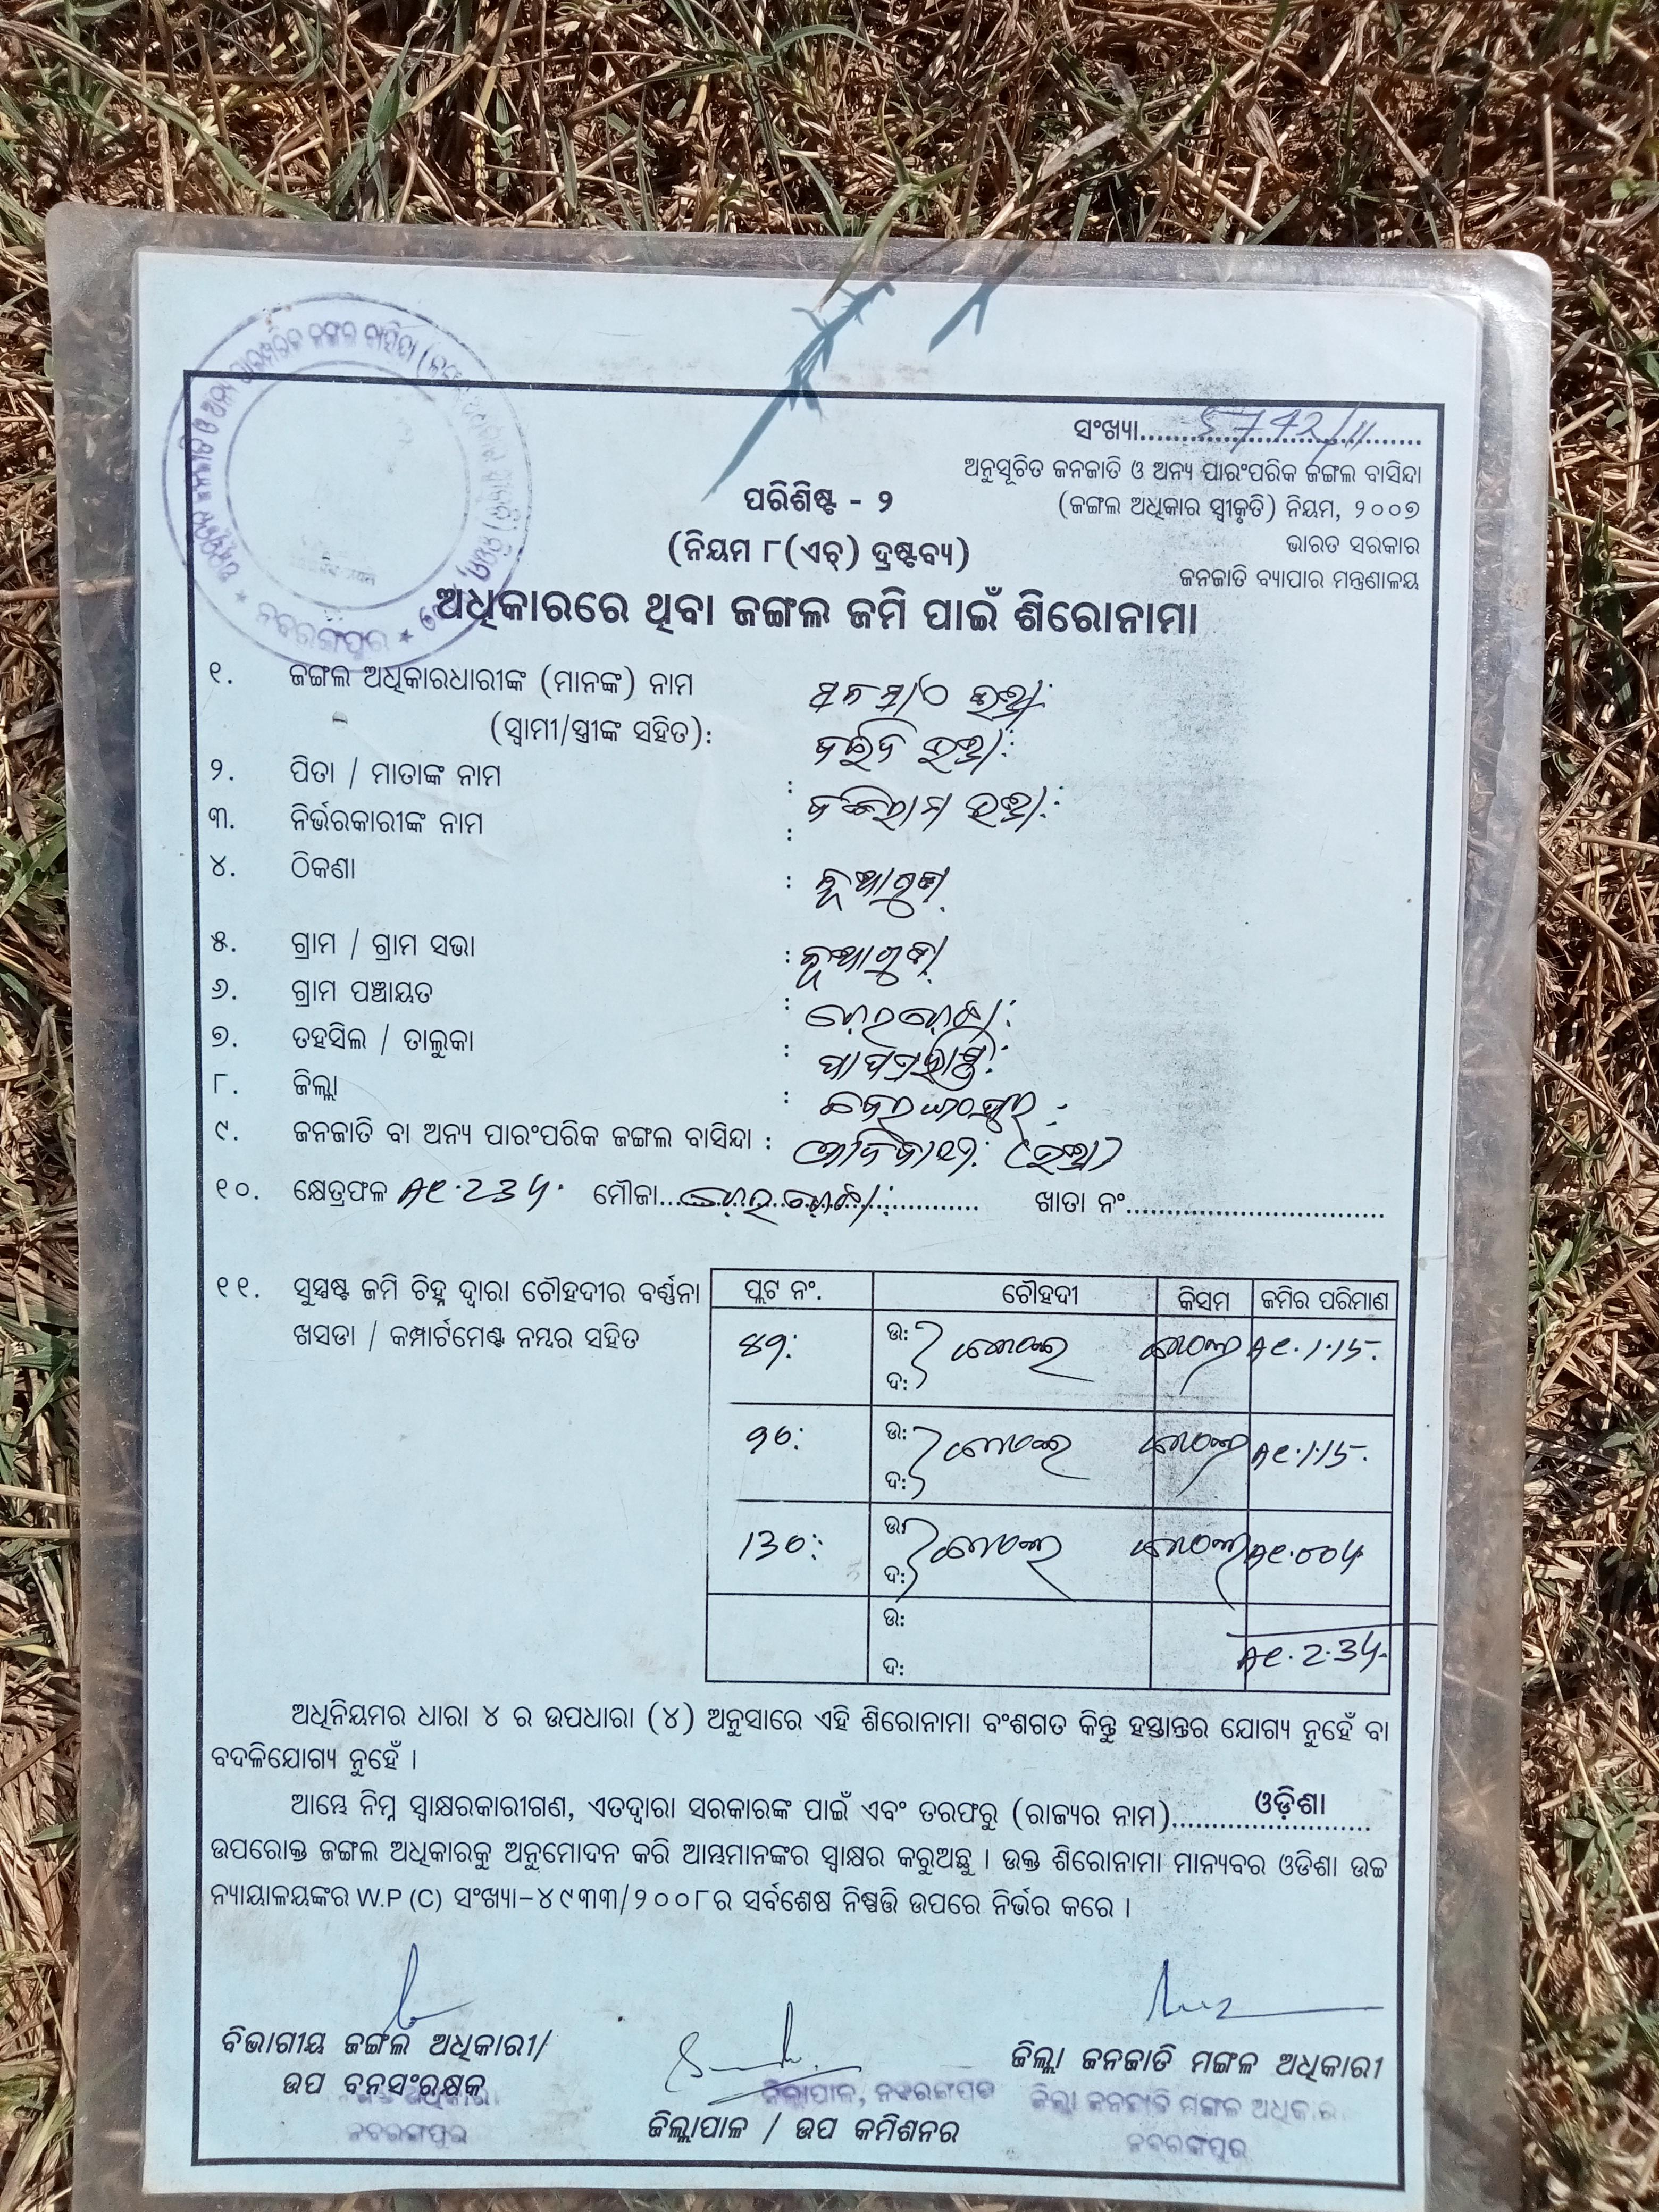 ସଂଖ୍ୟା........5742/11........
ଅନୁସୂଚିତ ଜନଜାତି ଓ ଅନ୍ୟ ପାରଂପରିକ ଜଙ୍ଗଲ ବାସିନ୍ଦା
(ଜଙ୍ଗଲ ଅଧିକାର ସ୍ୱୀକୃତି) ନିୟମ, ୨୦୦୭
ଭାରତ ସରକାର
ଜନଜାତି ବ୍ୟାପାର ମନ୍ତ୍ରଣାଳୟ
ପରିଶିଷ୍ଟ - ୨
(ନିୟମ ୮(ଏଚ୍) ଦ୍ରଷ୍ଟବ୍ୟ)
ଅଧିକାରରେ ଥିବା ଜଙ୍ଗଲ ଜମି ପାଇଁ ଶିରୋନାମା
ନବରଙ୍ଗପୁର
୧. ଜଙ୍ଗଲ ଅଧିକାରଧାରୀଙ୍କ (ମାନଙ୍କ) ନାମ
(ସ୍ୱାମୀ/ସ୍ତ୍ରୀଙ୍କ ସହିତ):
୨. ପିତା / ମାତାଙ୍କ ନାମ :
୩. ନିର୍ଭରକାରୀଙ୍କ ନାମ :
୪. ଠିକଣା : ନୂଆଗୁଡା
୫. ଗ୍ରାମ / ଗ୍ରାମ ସଭା : ନୂଆଗୁଡା
୬. ଗ୍ରାମ ପଞ୍ଚାୟତ :
୭. ତହସିଲ / ତାଲୁକା : ପାପଡାହାଣ୍ଡି
୮. ଜିଲ୍ଲା : ନବରଙ୍ଗପୁର
୯. ଜନଜାତି ବା ଅନ୍ୟ ପାରଂପରିକ ଜଙ୍ଗଲ ବାସିନ୍ଦା : ଆଦିବାସୀ
୧୦. କ୍ଷେତ୍ରଫଳ Ac.2.34. ମୌଜା.................... ଖାତା ନଂ....................
୧୧. ସୁସ୍ପଷ୍ଟ ଜମି ଚିହ୍ନ ଦ୍ୱାରା ଚୌହଦୀର ବର୍ଣ୍ଣନା
ଖସଡା / କମ୍ପାର୍ଟମେଣ୍ଟ ନମ୍ବର ସହିତ
ପ୍ଲଟ ନଂ. ଚୌହଦୀ କିସମ ଜମିର ପରିମାଣ
ଉ:
Ac.1.15.
ଦ:
ଉ:
Ac.1.15.
ଦ:
ଉ:
130: Ac.004
ଦ:
ଉ:
Ac.2.34.
ଦ:
ଅଧିନିୟମର ଧାରା ୪ ର ଉପଧାରା (୪) ଅନୁସାରେ ଏହି ଶିରୋନାମା ବଂଶଗତ କିନ୍ତୁ ହସ୍ତାନ୍ତର ଯୋଗ୍ୟ ନୁହେଁ ବା
ବଦଳିଯୋଗ୍ୟ ନୁହେଁ ।
ଆମ୍ଭେ ନିମ୍ନ ସ୍ୱାକ୍ଷରକାରୀଗଣ, ଏତଦ୍ୱାରା ସରକାରଙ୍କ ପାଇଁ ଏବଂ ତରଫରୁ (ରାଜ୍ୟର ନାମ).......ଓଡ଼ିଶା.......
ଉପରୋକ୍ତ ଜଙ୍ଗଲ ଅଧିକାରକୁ ଅନୁମୋଦନ କରି ଆମ୍ଭମାନଙ୍କର ସ୍ୱାକ୍ଷର କରୁଅଛୁ । ଉକ୍ତ ଶିରୋନାମା ମାନ୍ୟବର ଓଡିଶା ଉଚ୍ଚ
ନ୍ୟାୟାଳୟଙ୍କର W.P (C) ସଂଖ୍ୟା-୪୯୩୩/୨୦୦୮ର ସର୍ବଶେଷ ନିଷ୍ପତ୍ତି ଉପରେ ନିର୍ଭର କରେ ।
ବିଭାଗୀୟ ଜଙ୍ଗଲ ଅଧିକାରୀ/
ଉପ ବନସଂରକ୍ଷକ
ନବରଙ୍ଗପୁର
ଜିଲ୍ଲାପାଳ, ନବରଙ୍ଗପୁର
ଜିଲ୍ଲାପାଳ / ଉପ କମିଶନର
ଜିଲ୍ଲା ଜନଜାତି ମଙ୍ଗଳ ଅଧିକାରୀ
ଜିଲ୍ଲା ଜନଜାତି ମଙ୍ଗଳ ଅଧିକାରୀ
ନବରଙ୍ଗପୁର